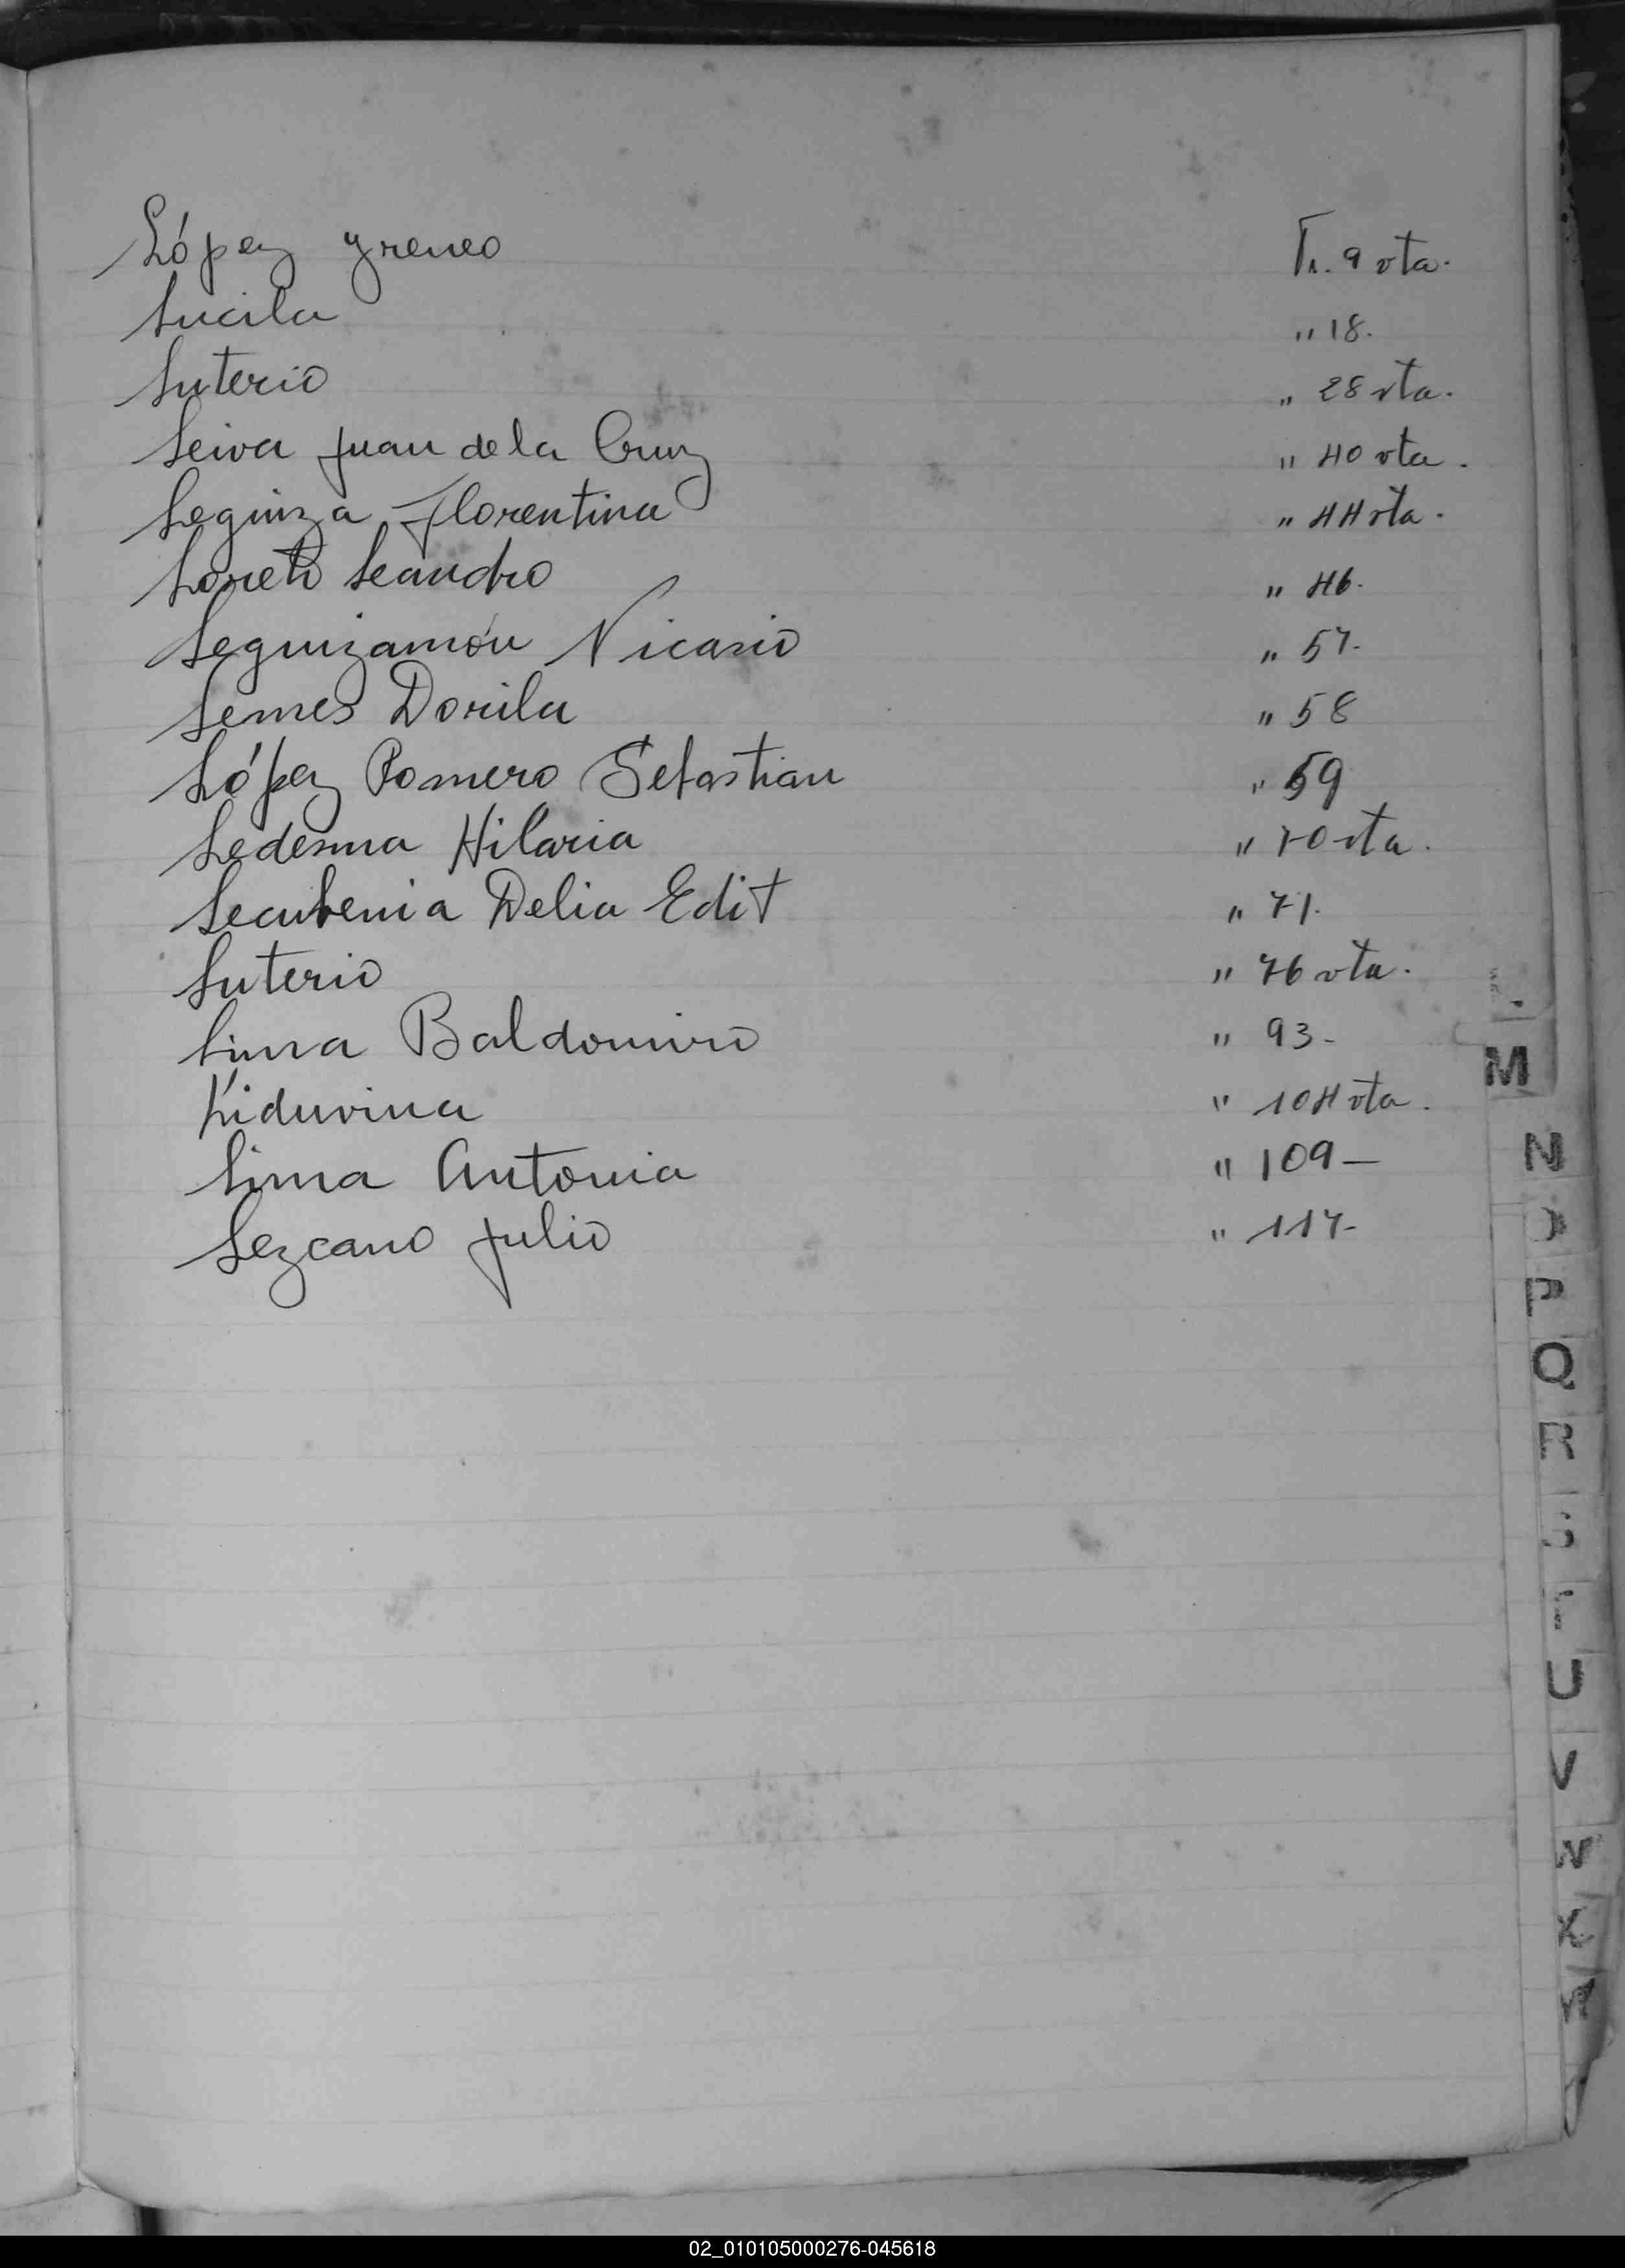 López Yreneo F. 9 vta.
Lucila " 18.
Luterio " 28 vta.
Leiva Juan de la Cruz " 40 vta.
Leguiza Florentina " 44 vta.
Loreto Leandro " 46.
Leguizamón Nicasio " 57.
Lemes Dorila " 58
López Romero Sebastian " 59
Ledesma Hilaria " 70 vta.
Delia Edit " 71.
Luterio " 76 vta.
Lima Baldomiro " 93-
Liduvina " 104 vta.
Lima Antonia " 109-
Lezcano Julio " 117-
M
N
P
Q
R
U
V
W
X
02_010105000276-045618